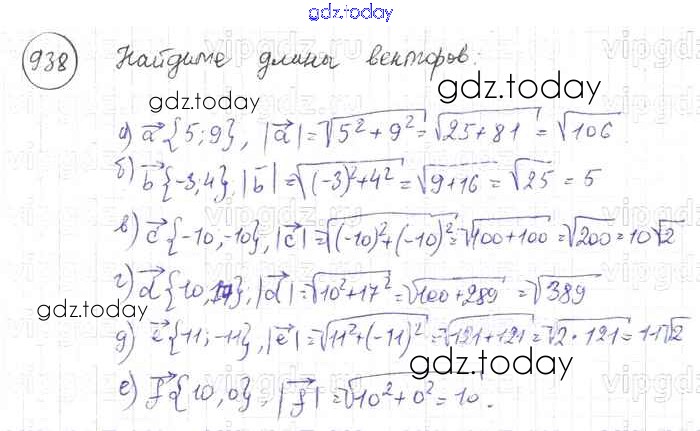 gdz.today
938 Найдите длины векторов:
gdz.today
gdz.today
а) a⃗ {5; 9}, |a⃗| = √5² + 9² = √25 + 81 = √106
б) b⃗ {-3, 4}, |b⃗| = √(-3)² + 4² = √9 + 16 = √25 = 5
в) c⃗ {-10, -10}, |c⃗| = √(-10)² + (-10)² = √100 + 100 = √200 = 10√2
г) d⃗ {10, 17}, |d⃗| = √10² + 17² = √100 + 289 = √389
gdz.today
д) e⃗ {11; -11}, |e⃗| = √11² + (-11)² = √121 + 121 = √2 · 121 = 11√2
gdz.today
е) f⃗ {10, 0}, |f⃗| = √10² + 0² = 10.